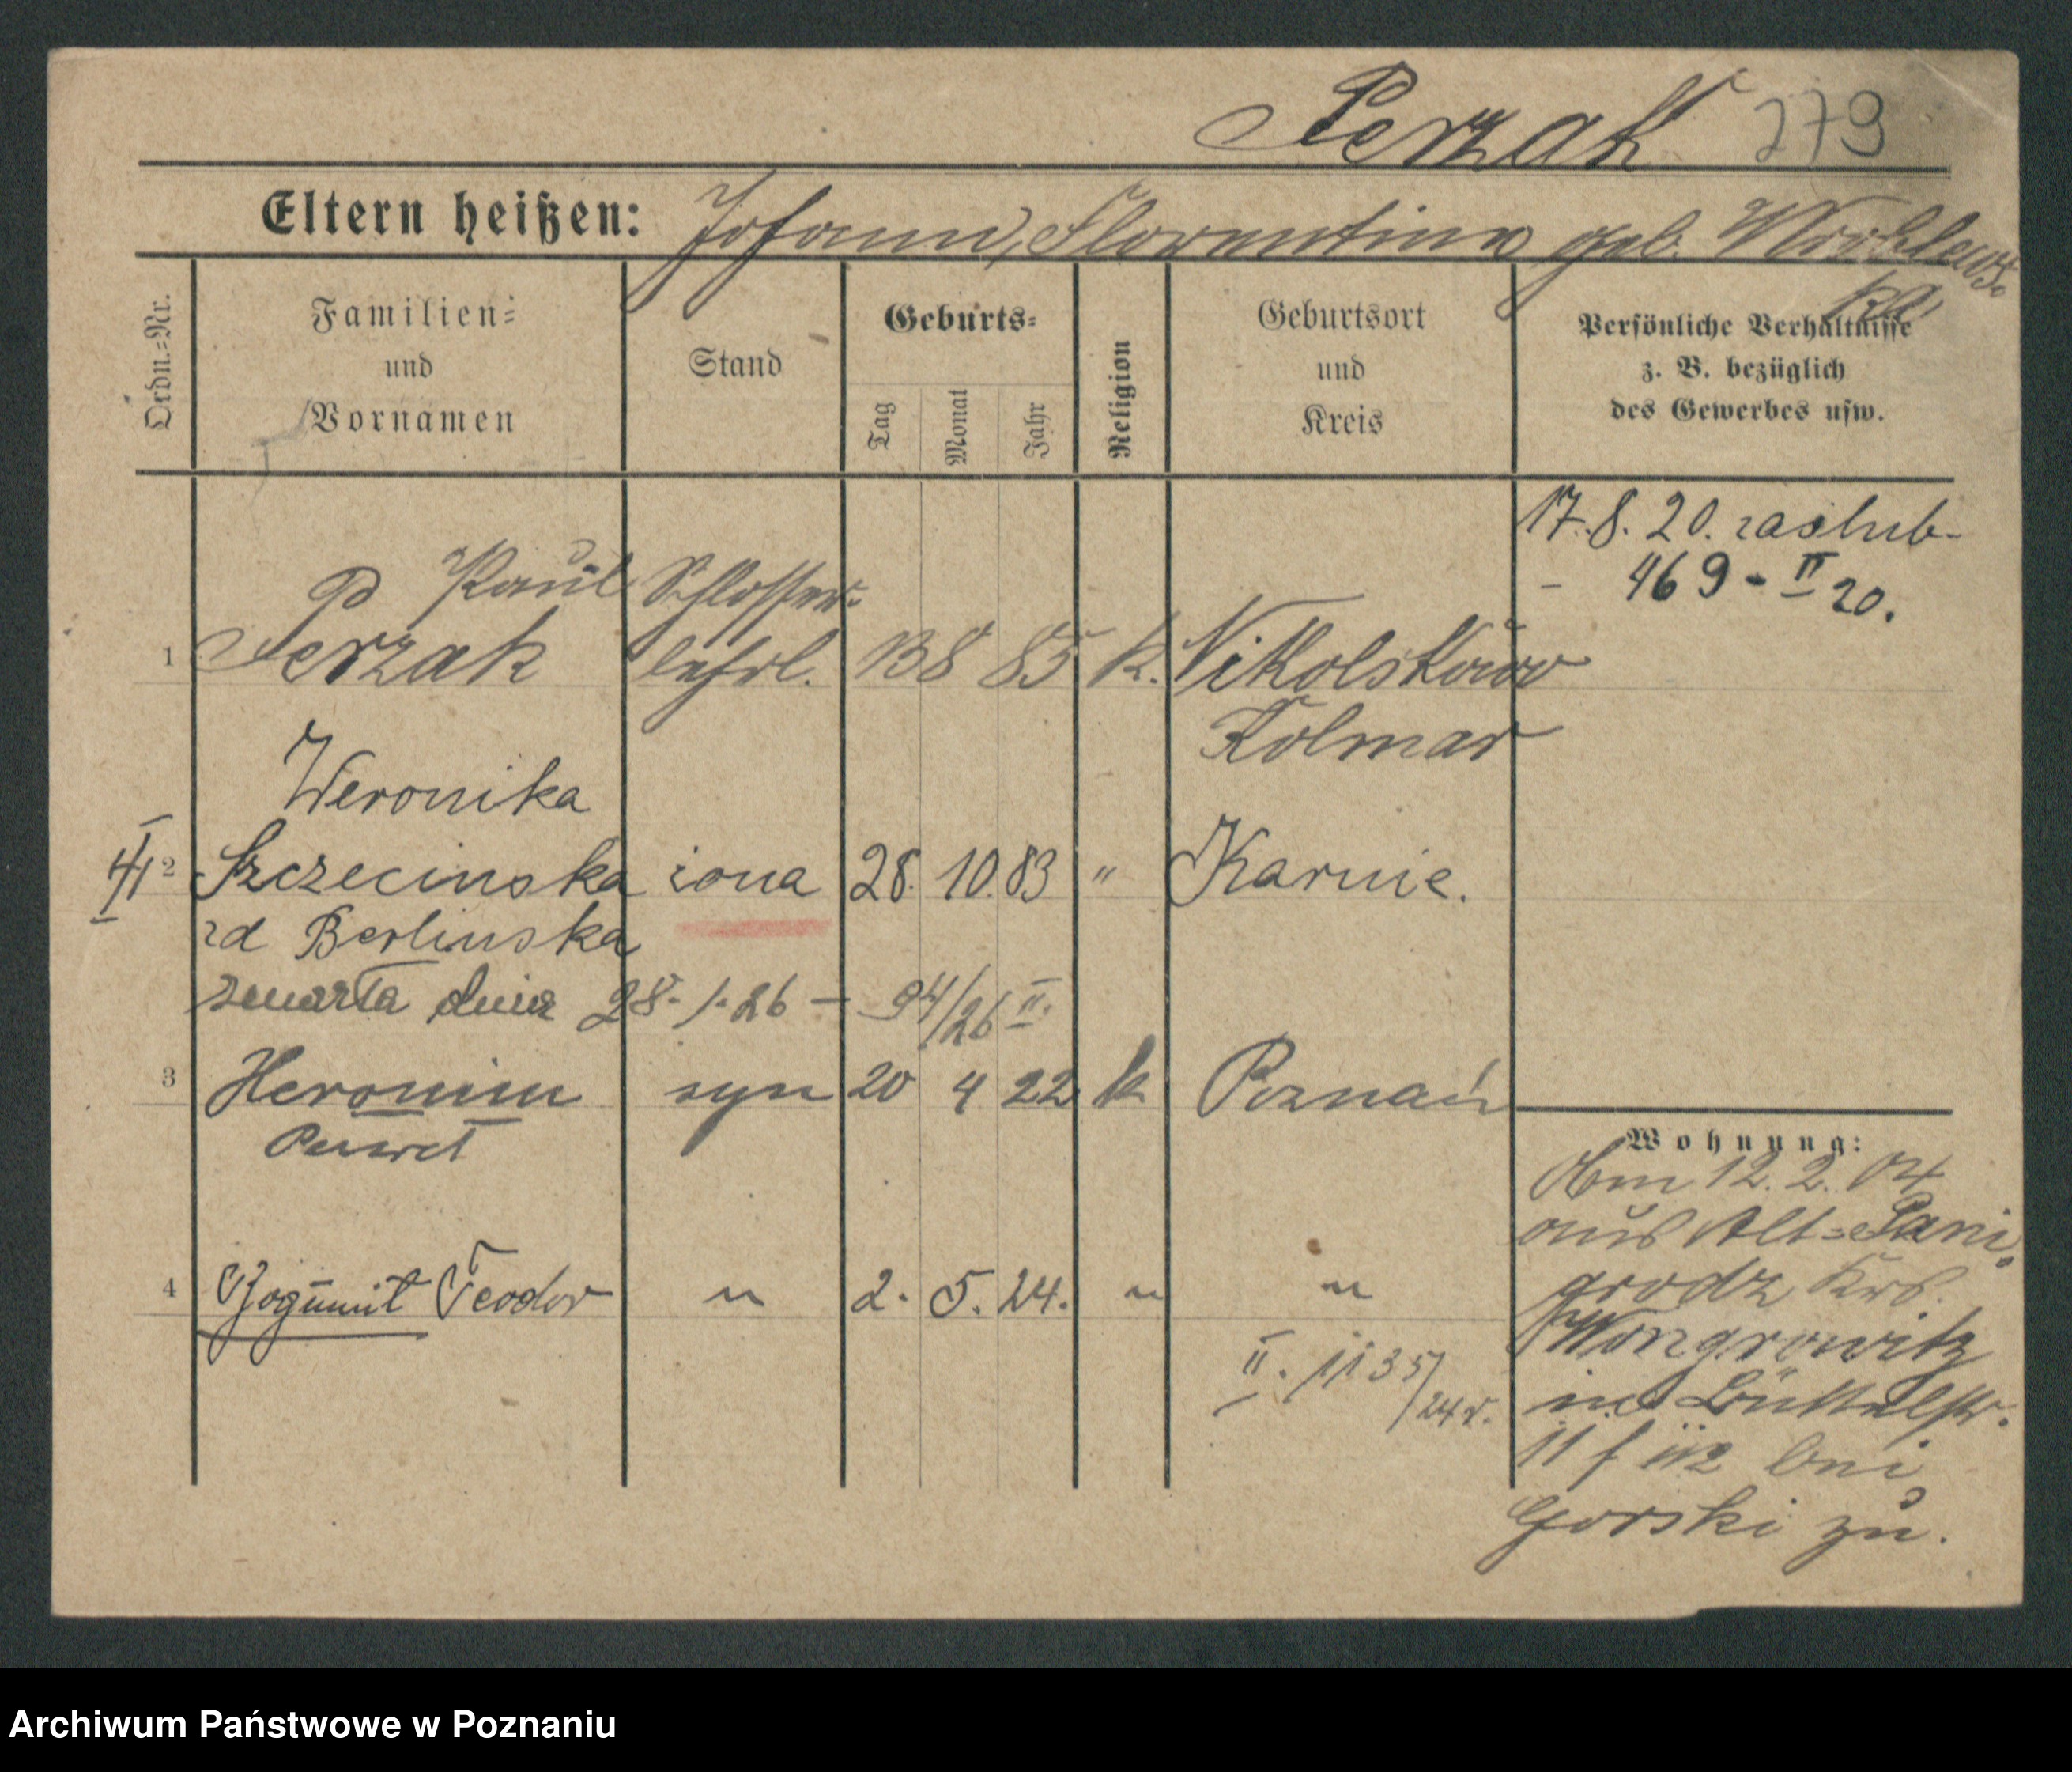 Perzak 279
Eltern heißen: Johann, Florentina geb. Wroblews-
ka
Ordn.-Nr.
Familien-
und
Vornamen
Stand
Geburts-
Tag
Monat
Jahr
Religion
Geburtsort
und
Kreis
Persönliche Verhältnisse
z. B. bezüglich
des Gewerbes usw.
17.8.20. zaslub-
- 469 - II 20.
Paul Schlosser-
1 Perzak lehrl. 13 8 85 k. Nikolskowo
Kolmar
Weronika
2 Szczecinska zona 28. 10. 83 " Karnie.
zd Berlinska
zmarła dnia 28. 1. 26 — 94/26 II.
3 Heronim syn 20 4 22 k Poznań
4 Bogumił Teodor " 2. 5. 24. " "
II. 1135/24 r.
Wohnung:
Am 12. 2. 04
aus Alt-Pani-
grodz Krs.
Wongrowitz
Büttelstr.
11 bei
Gorski zu.
Archiwum Państwowe w Poznaniu